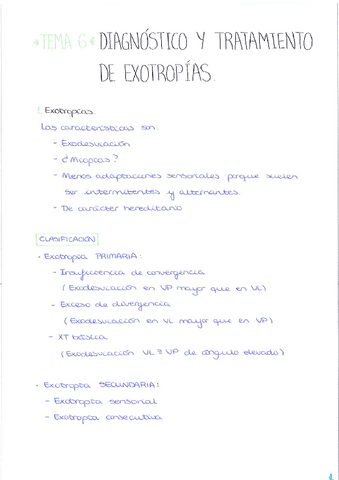 •TEMA 6• DIAGNÓSTICO Y TRATAMIENTO
DE EXOTROPÍAS.
1. Exotropías.
Las características son:
- Exodesviación
- ¿Miopías?
- Menos adaptaciones sensoriales porque suelen
ser intermitentes y alternantes.
- De carácter hereditario
CLASIFICACIÓN
• Exotropia PRIMARIA:
- Insuficiencia de convergencia
(Exodesviación en VP mayor que en VL)
- Exceso de divergencia
(Exodesviación en VL mayor que en VP)
- XT básica
(Exodesviación VL ≅ VP de ángulo elevado)
• Exotropia SECUNDARIA:
- Exotropia sensorial
- Exotropia consecutiva
1